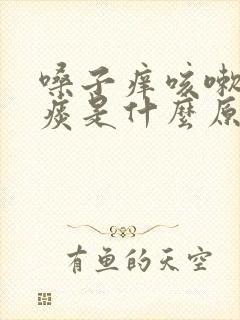 嗓子痒咳嗽
痰是什麼原
有鱼的天空